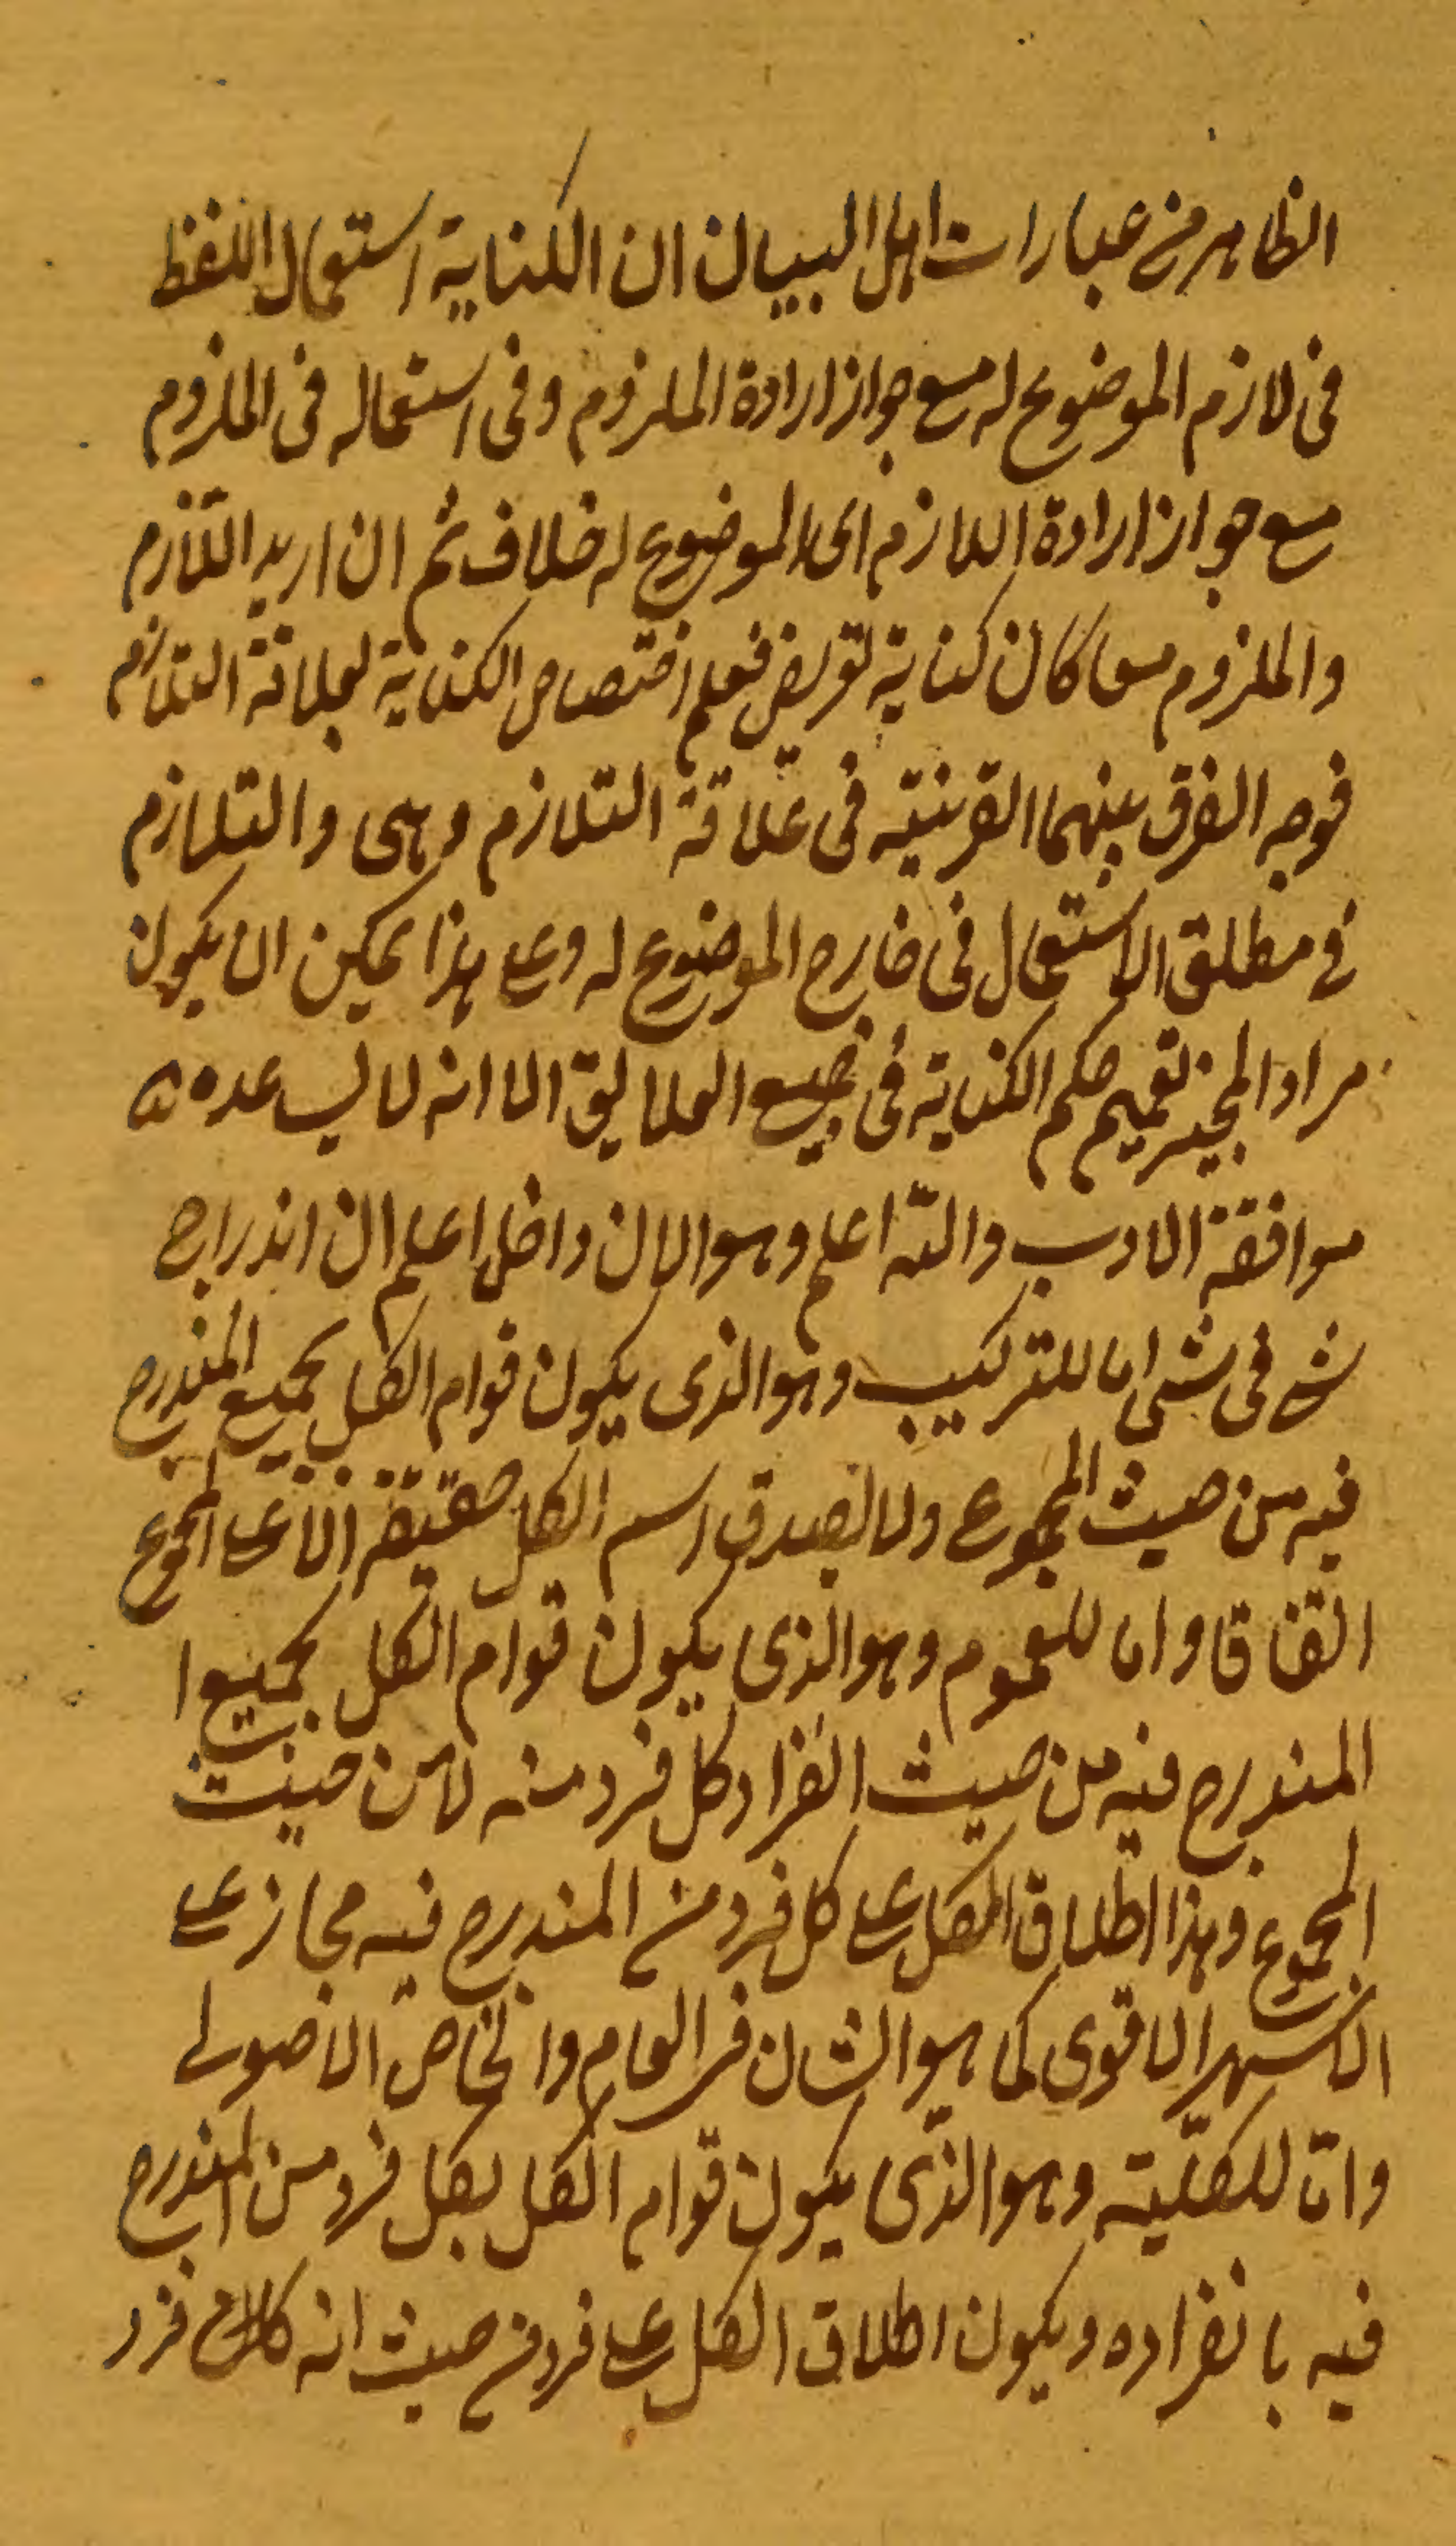 الظاهر من عبارات اهل البيان ان الكناية استعمال اللفظ
فى لازم الموضوع له مع جواز ارادة الملزوم وفى استعماله فى الملزوم
مع جواز ارادة اللازم اى الموضوع له خلاف ثم ان اريد اللازم
والملزوم معا كان كناية تعريض فعلم اختصاص الكناية لعلاقة التلازم
فوجه الفرق بينهما القرينة فى علاقة التلازم وهى والتلازم
فى مطلق الاستعمال فى خارج الموضوع له وعلى هذا يمكن ان يكون
مراد المجيز تعميم حكم الكناية فى جميع العلايق الا انه لا يساعده
موافقة الادب والله اعلم وهو الان داخل اعلم ان اندراج
شئ فى شئ اما للتركيب وهو الذى يكون قوام الكل بجميع المندرج
فيه من حيث المجموع ولا يصدق اسم الكل حقيقة الا على المجموع
اتفاقا واما للعموم وهو الذى يكون قوام الكل بجميع ا
المندرج فيه من حيث انفراد كل فرد منه لا من حيث
المجموع وهذا اطلاق الكل على كل فرد من المندرج فيه مجاز على
الاشهر الاقوى كما هو الشان فى العام والخاص الاصولى
واما للكلية وهو الذى يكون قوام الكل بكل فرد من المندرج
فيه بانفراده ويكون اطلاق الكل على فرد من حيث انه فرد